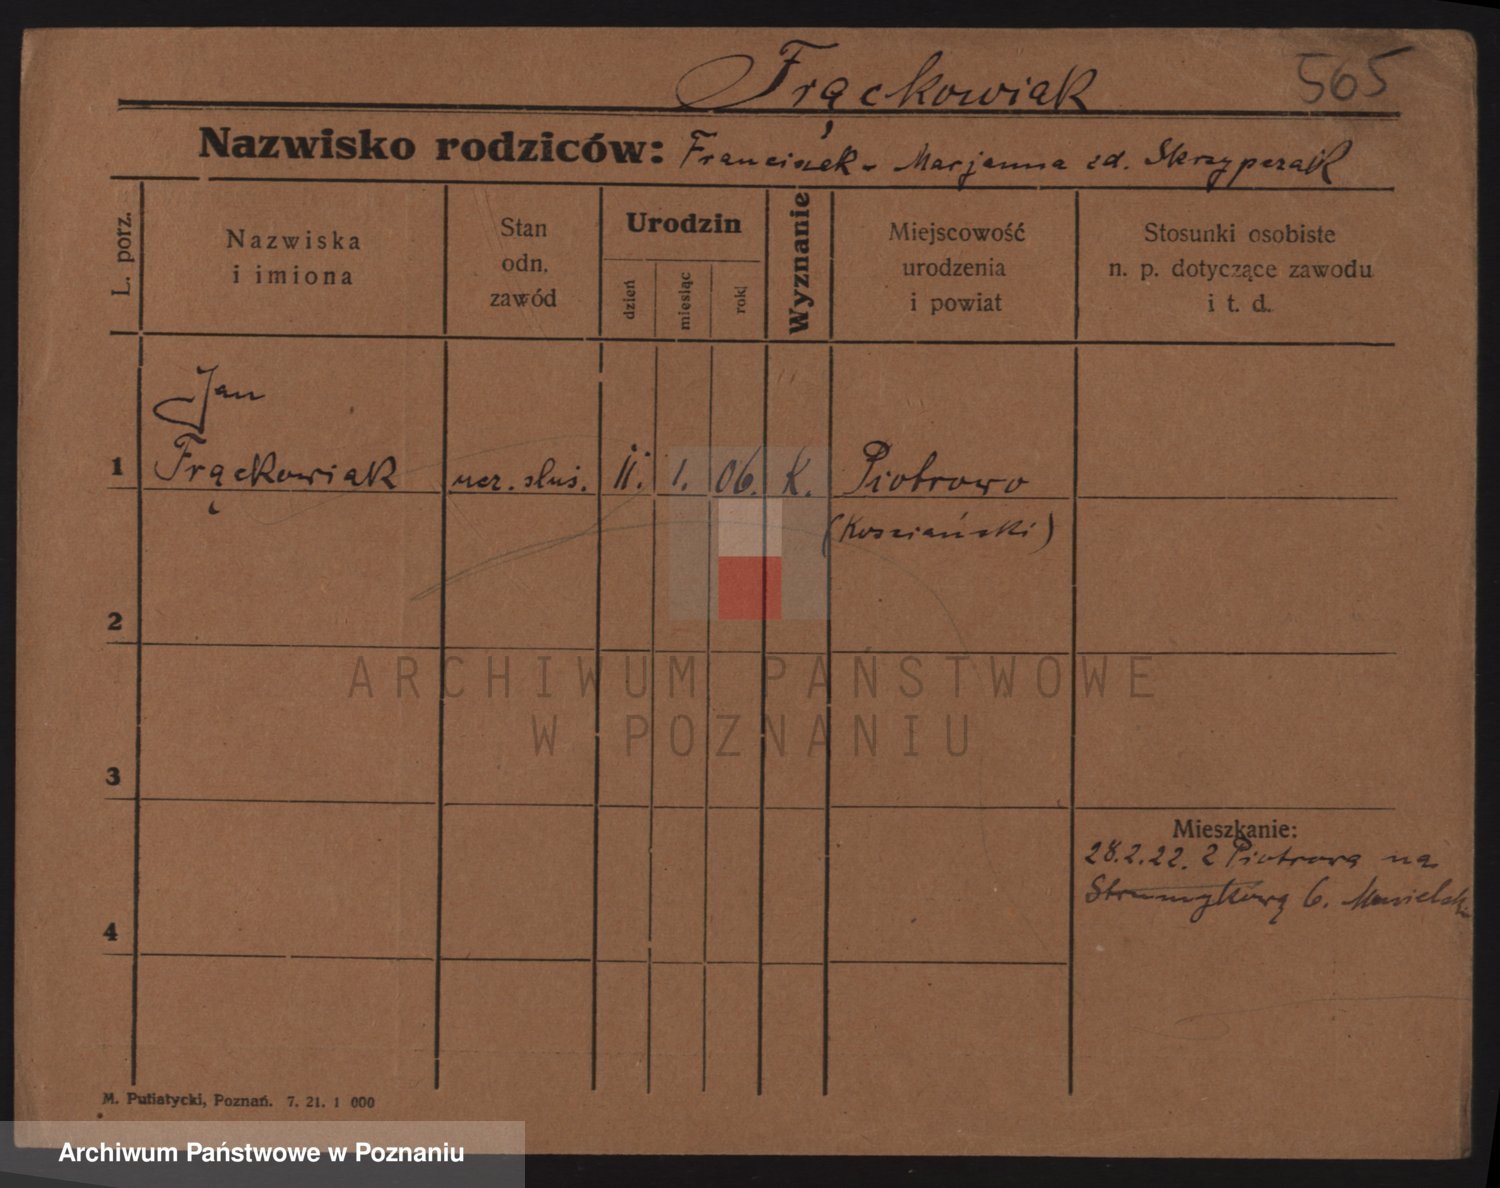 Frąckowiak
565
Nazwisko rodziców: Franciszek - Marjanna zd. Skrzypczak
L. porz.
Nazwiska
i imiona
Stan
odn.
zawód
Urodzin
dzień
miesiąc
rok
Wyznanie
Miejscowość
urodzenia
i powiat
Stosunki osobiste
n. p. dotyczące zawodu
i t. d.
Jan
1 Frąckowiak ucz. ślus. 11. 1. 06. K. Piotrowo
(Kościański)
2
3
4
Mieszkanie:
28.2.22. z Piotrowa na
Strumykową 6.
ARCHIWUM PAŃSTWOWE
W POZNANIU
M. Putiatycki, Poznań. 7. 21. 1 000
Archiwum Państwowe w Poznaniu